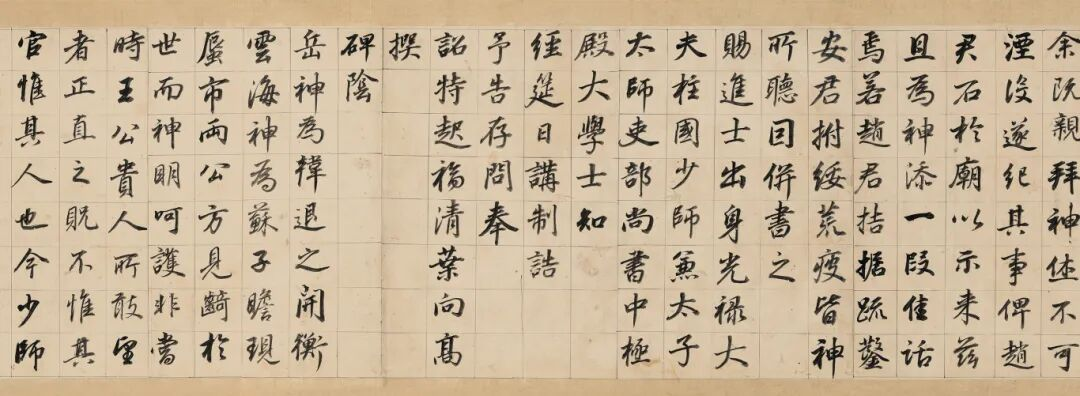 余既親拜神庥不可
湮沒遂紀其事俾趙
君石於廟以示来茲
且為神添一段佳話
焉若趙君拮据疏鑿
安君拊綏荒瘦皆神
所聽回併書之
賜進士出身光祿大
夫柱國少師兼太子
太師吏部尚書中極
殿大學士知
經筵日講制誥
予告存問奉
詔特起福清葉向高
撰
碑陰
岳神為韓退之開衡
雲海神為蘇子瞻現
蜃市兩公方見齮於
世而神明呵護非當
時王公貴人所敢望
者正直之貺不惟其
官惟其人也今少師